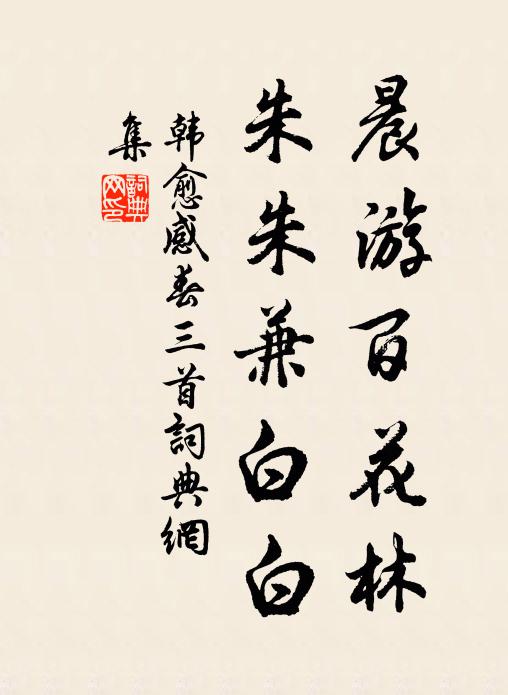 晨游百花林
朱朱兼白白
韩愈感春三首詞典網
集
詞典
网印